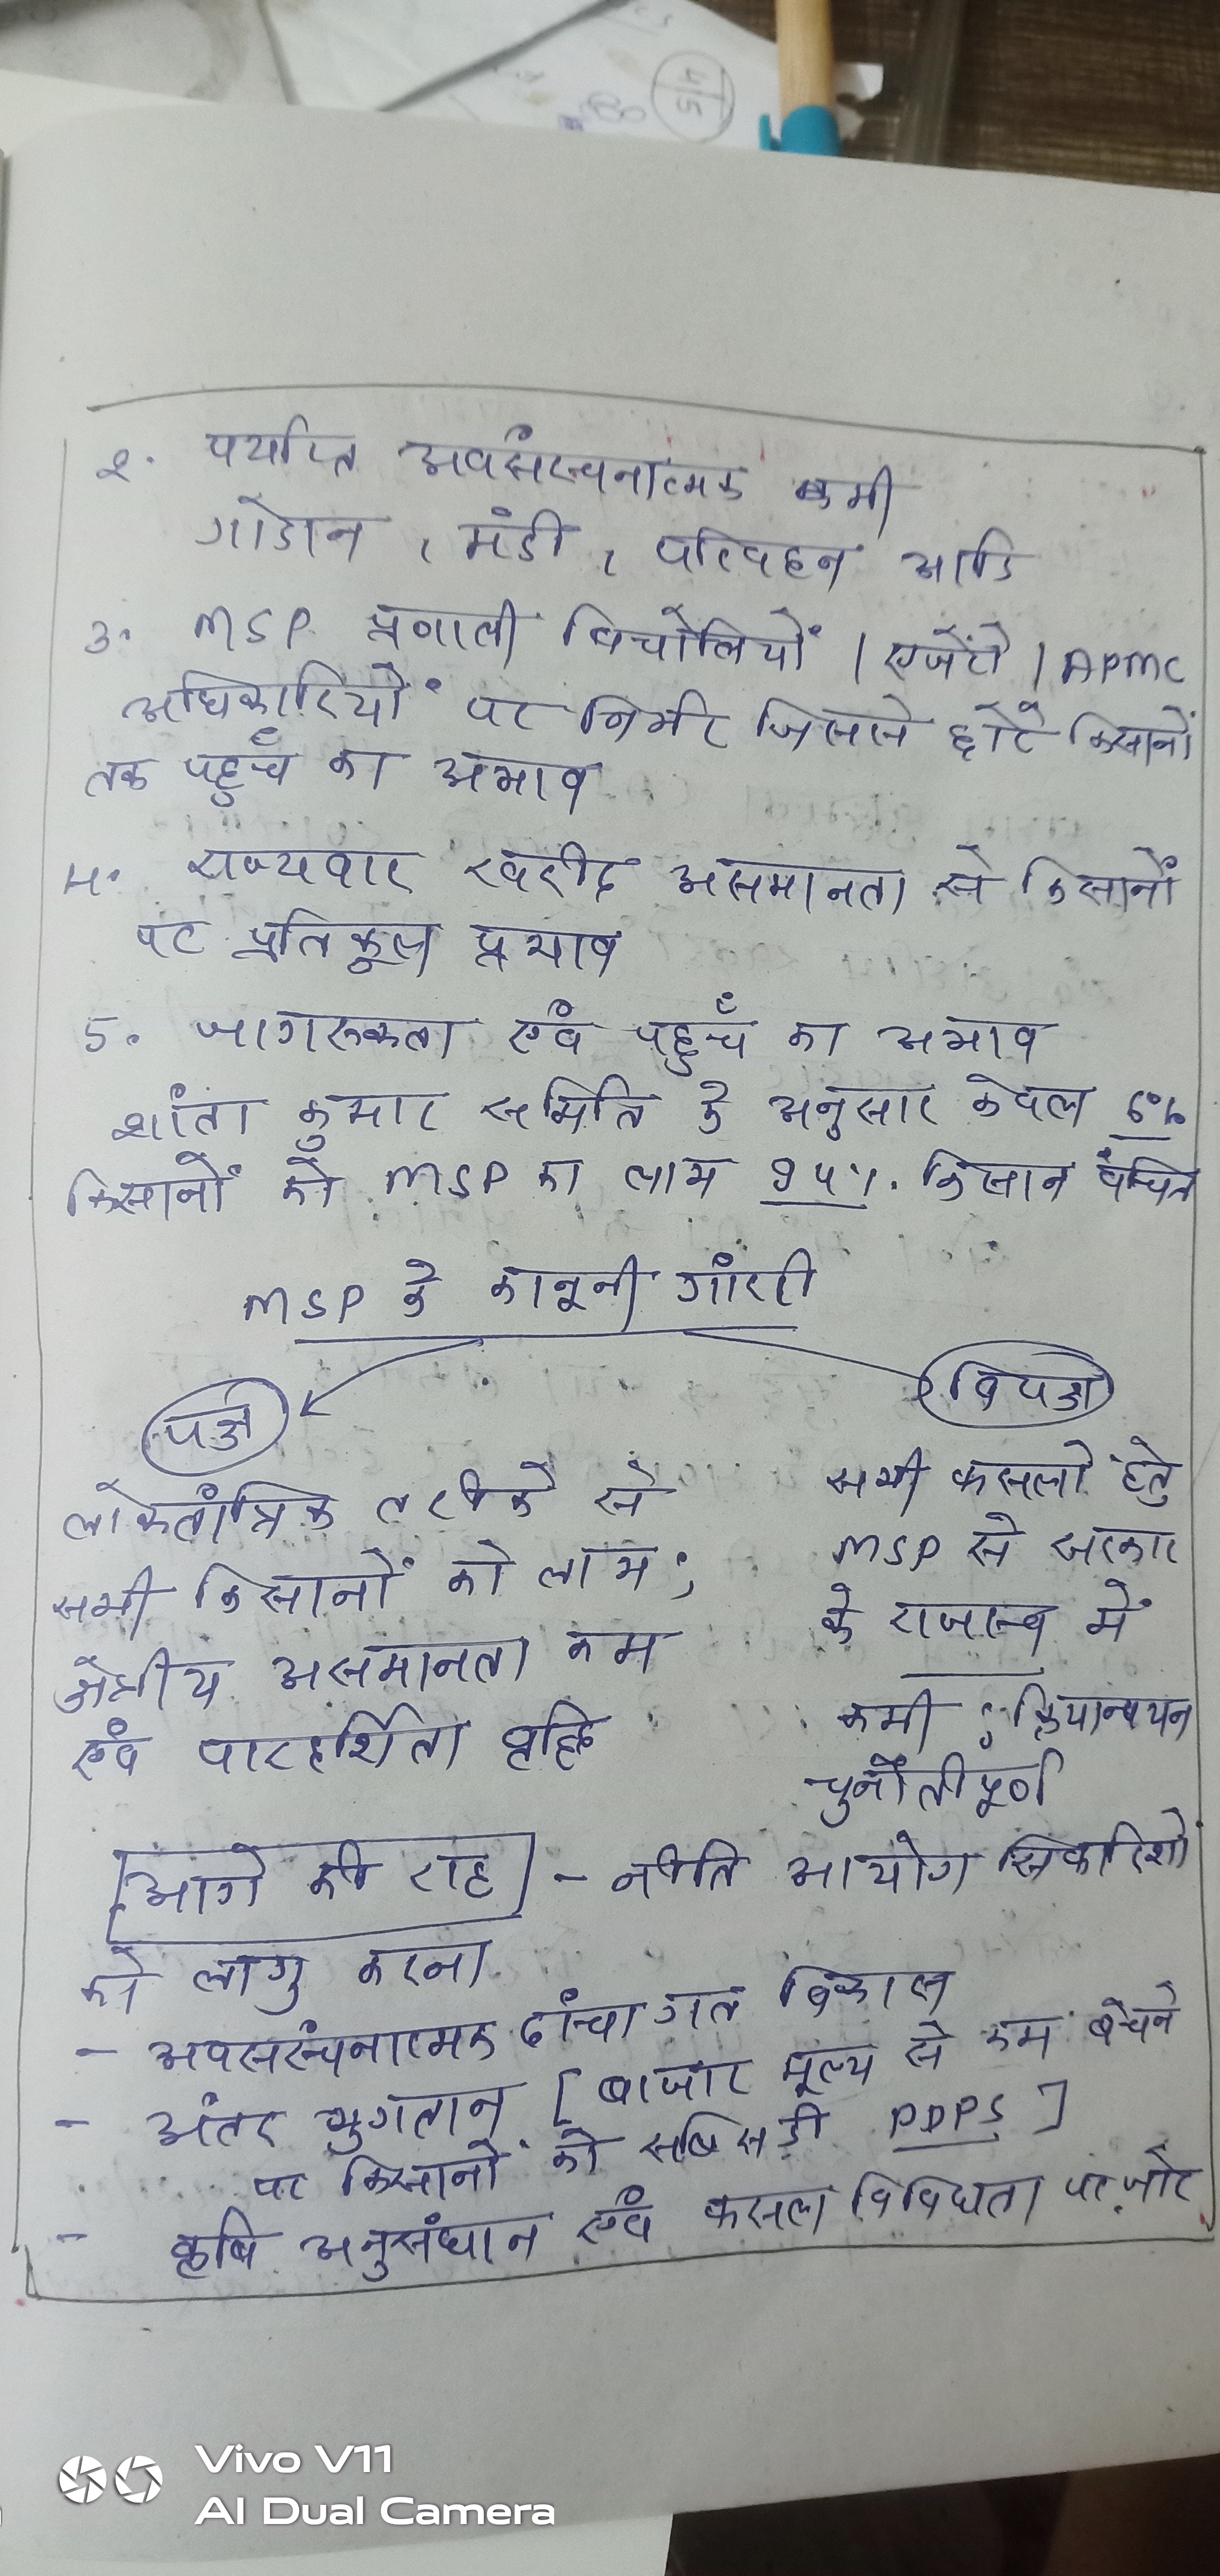 415
2. पर्याप्त अवसंरचनात्मक कमी
गोडान, मंडी, परिवहन आदि
3. MSP प्रणाली विचौलियों / एजेंटो / APMC
अधिकारियों पर निर्भर जिससे छोटे किसानों
तक पहुँच का अभाव
4. राज्यवार खरीद असमानता से किसानों
पर प्रतिकूल प्रभाव
5. जागरूकता एवं पहुँच का अभाव
शांता कुमार समिति के अनुसार केवल 6%
किसानों को MSP का लाभ 94%. किसान वंचित
MSP के कानूनी गांरटी
पक्ष
विपक्ष
लोकतांत्रिक तरीके से
सभी किसानों को लाभ;
क्षेत्रीय असमानता कम
एवं पारदर्शिता वृद्धि
सभी फसलों हेतु
MSP से सरकार
के राजास्व में
कमी ; क्रियान्वयन
चुनौतीपूर्ण
[आगे की राह] - नीति आयोग सिफारिशो
को लागु करना
- अवसरंचनात्मक ढांचागत विकास
- अंतर भुगतान [बाजार मूल्य से कम बेचने
पर किसानों को सब्सिडी PDPS]
- कृषि अनुसंधान एवं फसल विविधता पर जोर
Vivo V11
AI Dual Camera